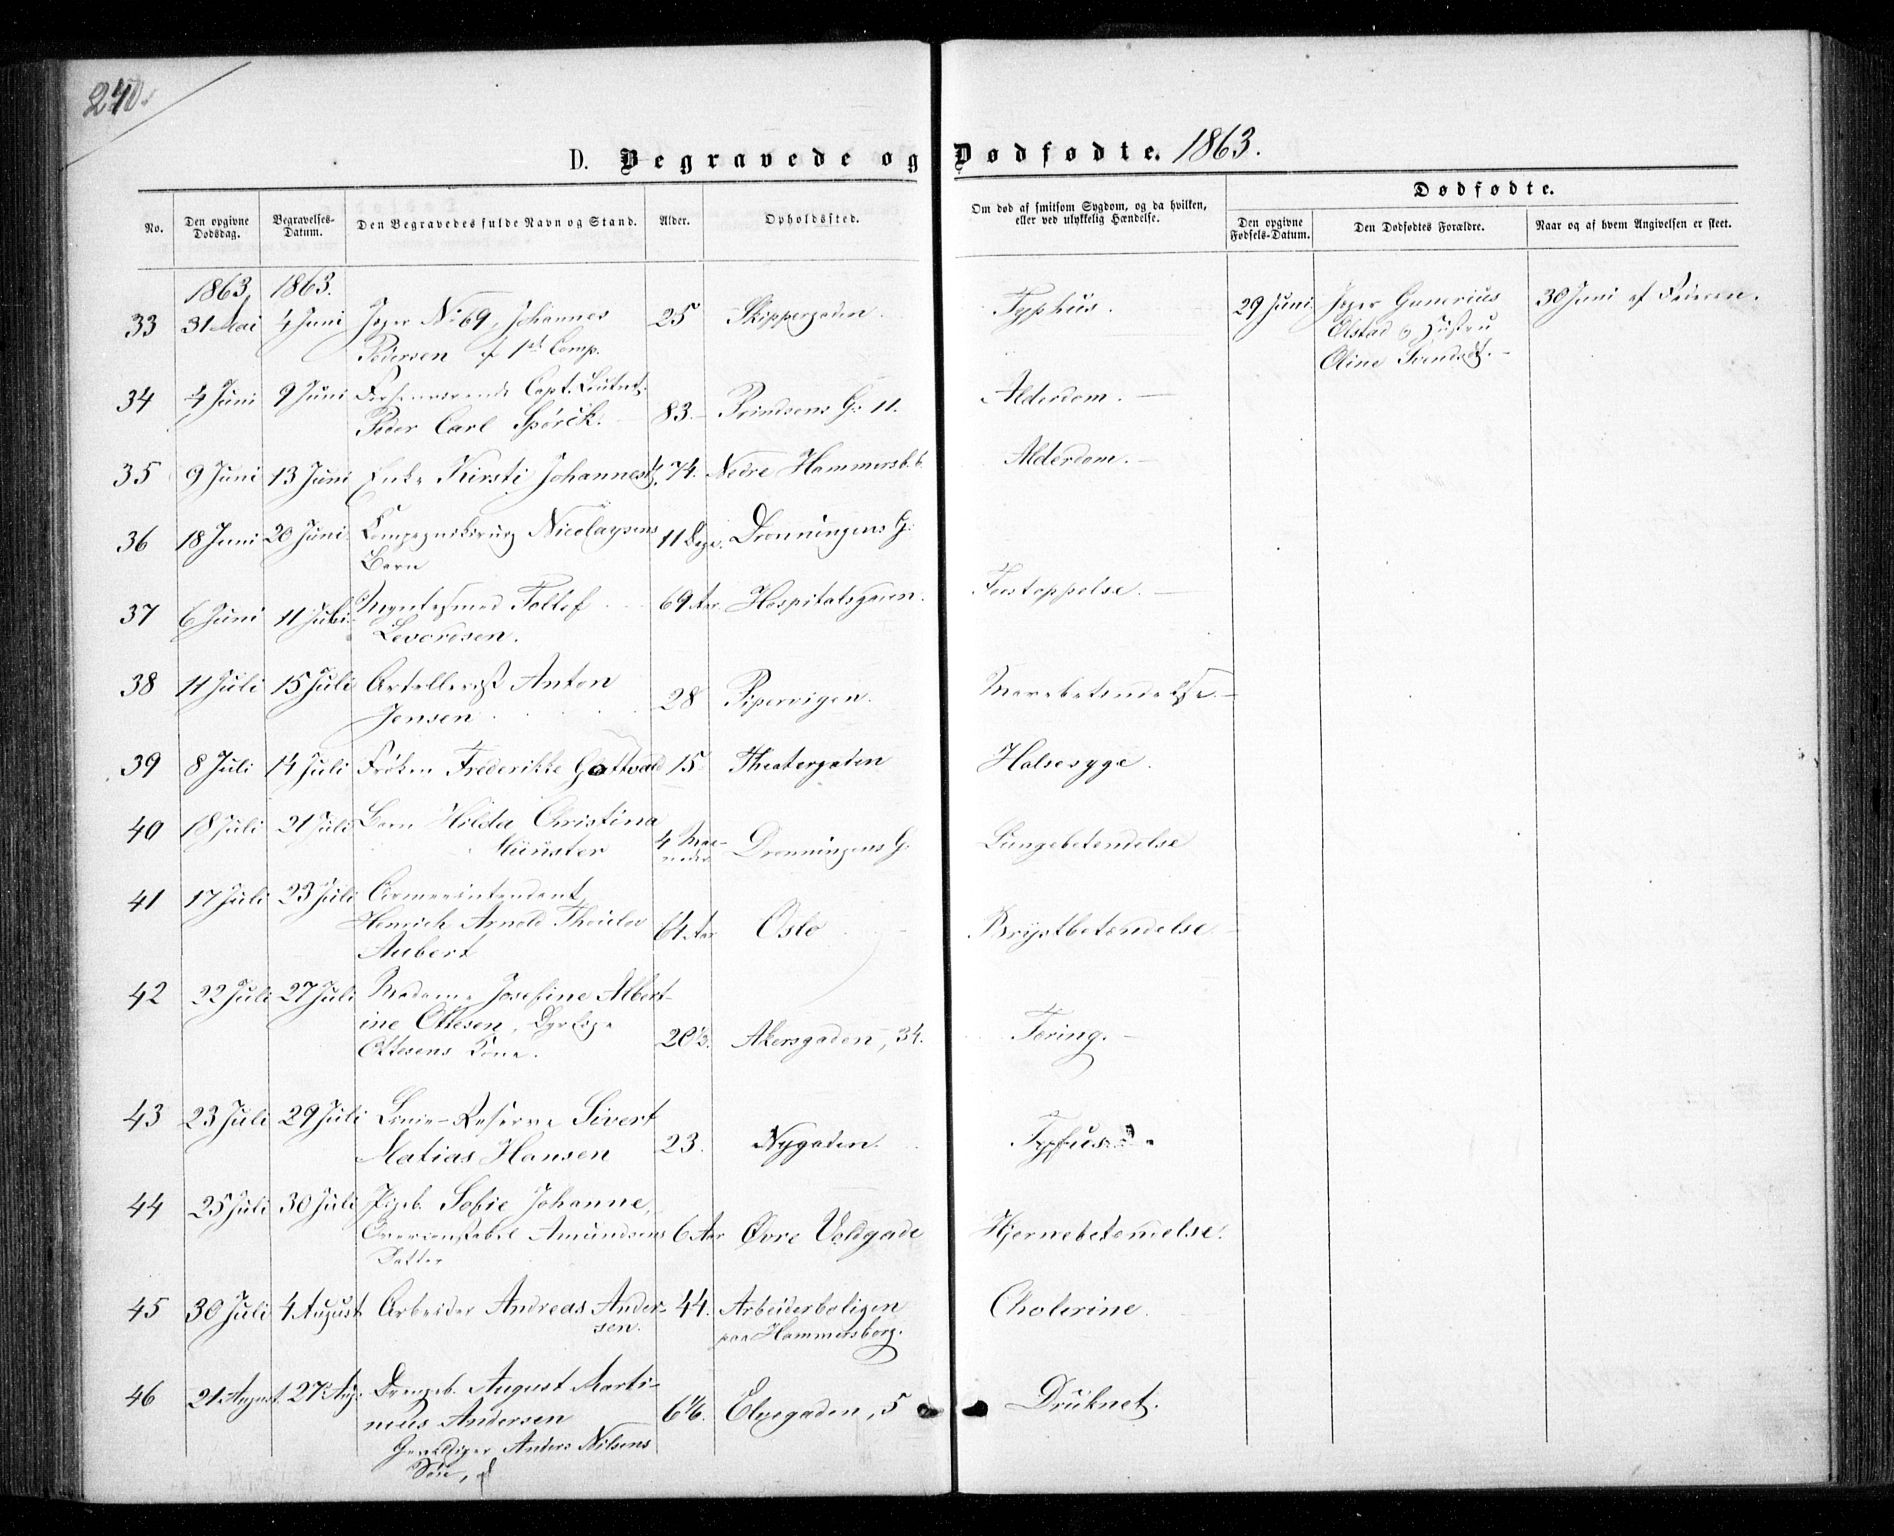 240.
D. Begravede og Dødfødte. 1863.
No. Den opgivne Dødsdag. Begravelses-Datum. Den Begravedes fulde Navn og Stand. Alder. Opholdssted. Om død af smitsom Sygdom, og da hvilken, eller ved ulykkelig Hændelse. Dødfødte.
Den opgivne Fødsels-Datum. Den Dødfødtes Forældre. Naar og af hvem Angivelsen er skeet.
1863 1863.
33 31 Mai 4 Juni Jæger No 69, Johannes 25 Skippergaden. Typhus. 29 Juni Jæger Gunerius 30 Juni af Faderen.
Pedersen af 1ste Comp. Olstad og Hustru
Oline Svendsdt.
34 4 Juni 9 Juni Forhenværende Capt. Leutnt.
Peder Carl Spørck. 83. Prindsens G: 11. Alderdom.
35 9 Juni 13 Juni Enke Kirsti Johannesd. 74. Nedre Hammersb. 6. Alderdom.
36 18 Juni 20 Juni Compagnikirurg Nicolaysens 11 Dage. Dronningens G:
Barn
37 6 Juni 11 Juli Tollef 69 Aar Hospitalsgaden. Forstoppelse.
Levordsen.
38 11 Juli 15 Juli Artellerist Anton 28 Pipervigen. Mavebetændelse.
Jensen
39 8 Juli 14 Juli Frøken Frederikke Gottwald 15 Theatergaden Halssyge.
40 18 Juli 21 Juli Barn Hilda Christina 4 Maa-
Münster neder Dronningens G. Lungebetændelse
41 17 Juli 23 Juli Armeeintendant
Henrich Arnold Thaulow 61 Aar Oslo Brystbetændelse
Aubert
42 22 Juli 27 Juli Madame Josefine Albert-
ine Ottesen, 20½. Akersgaden, 34. Tæring.
Ottesens Kone.
43 23 Juli 29 Juli Linie-Reserve Sivert
Matias Hansen 23. Nygaden. Typhus.
44 25 Juli 30 Juli Pigeb. Sofie Johanne,
Overconstabel Amundsens 6 Aar Øvre Voldgade Hjernebetændelse.
Datter
45 30 Juli 4 August Arbeider Andreas Ander- 44. Arbeiderboligen Cholerine.
sen. paa Hammersborg.
46 21 August. 27 Aug. Drengeb. August Marti-
nius Andersen 6 Elvegaden, 5 Druknet.
Anders Nilsens
Søn,